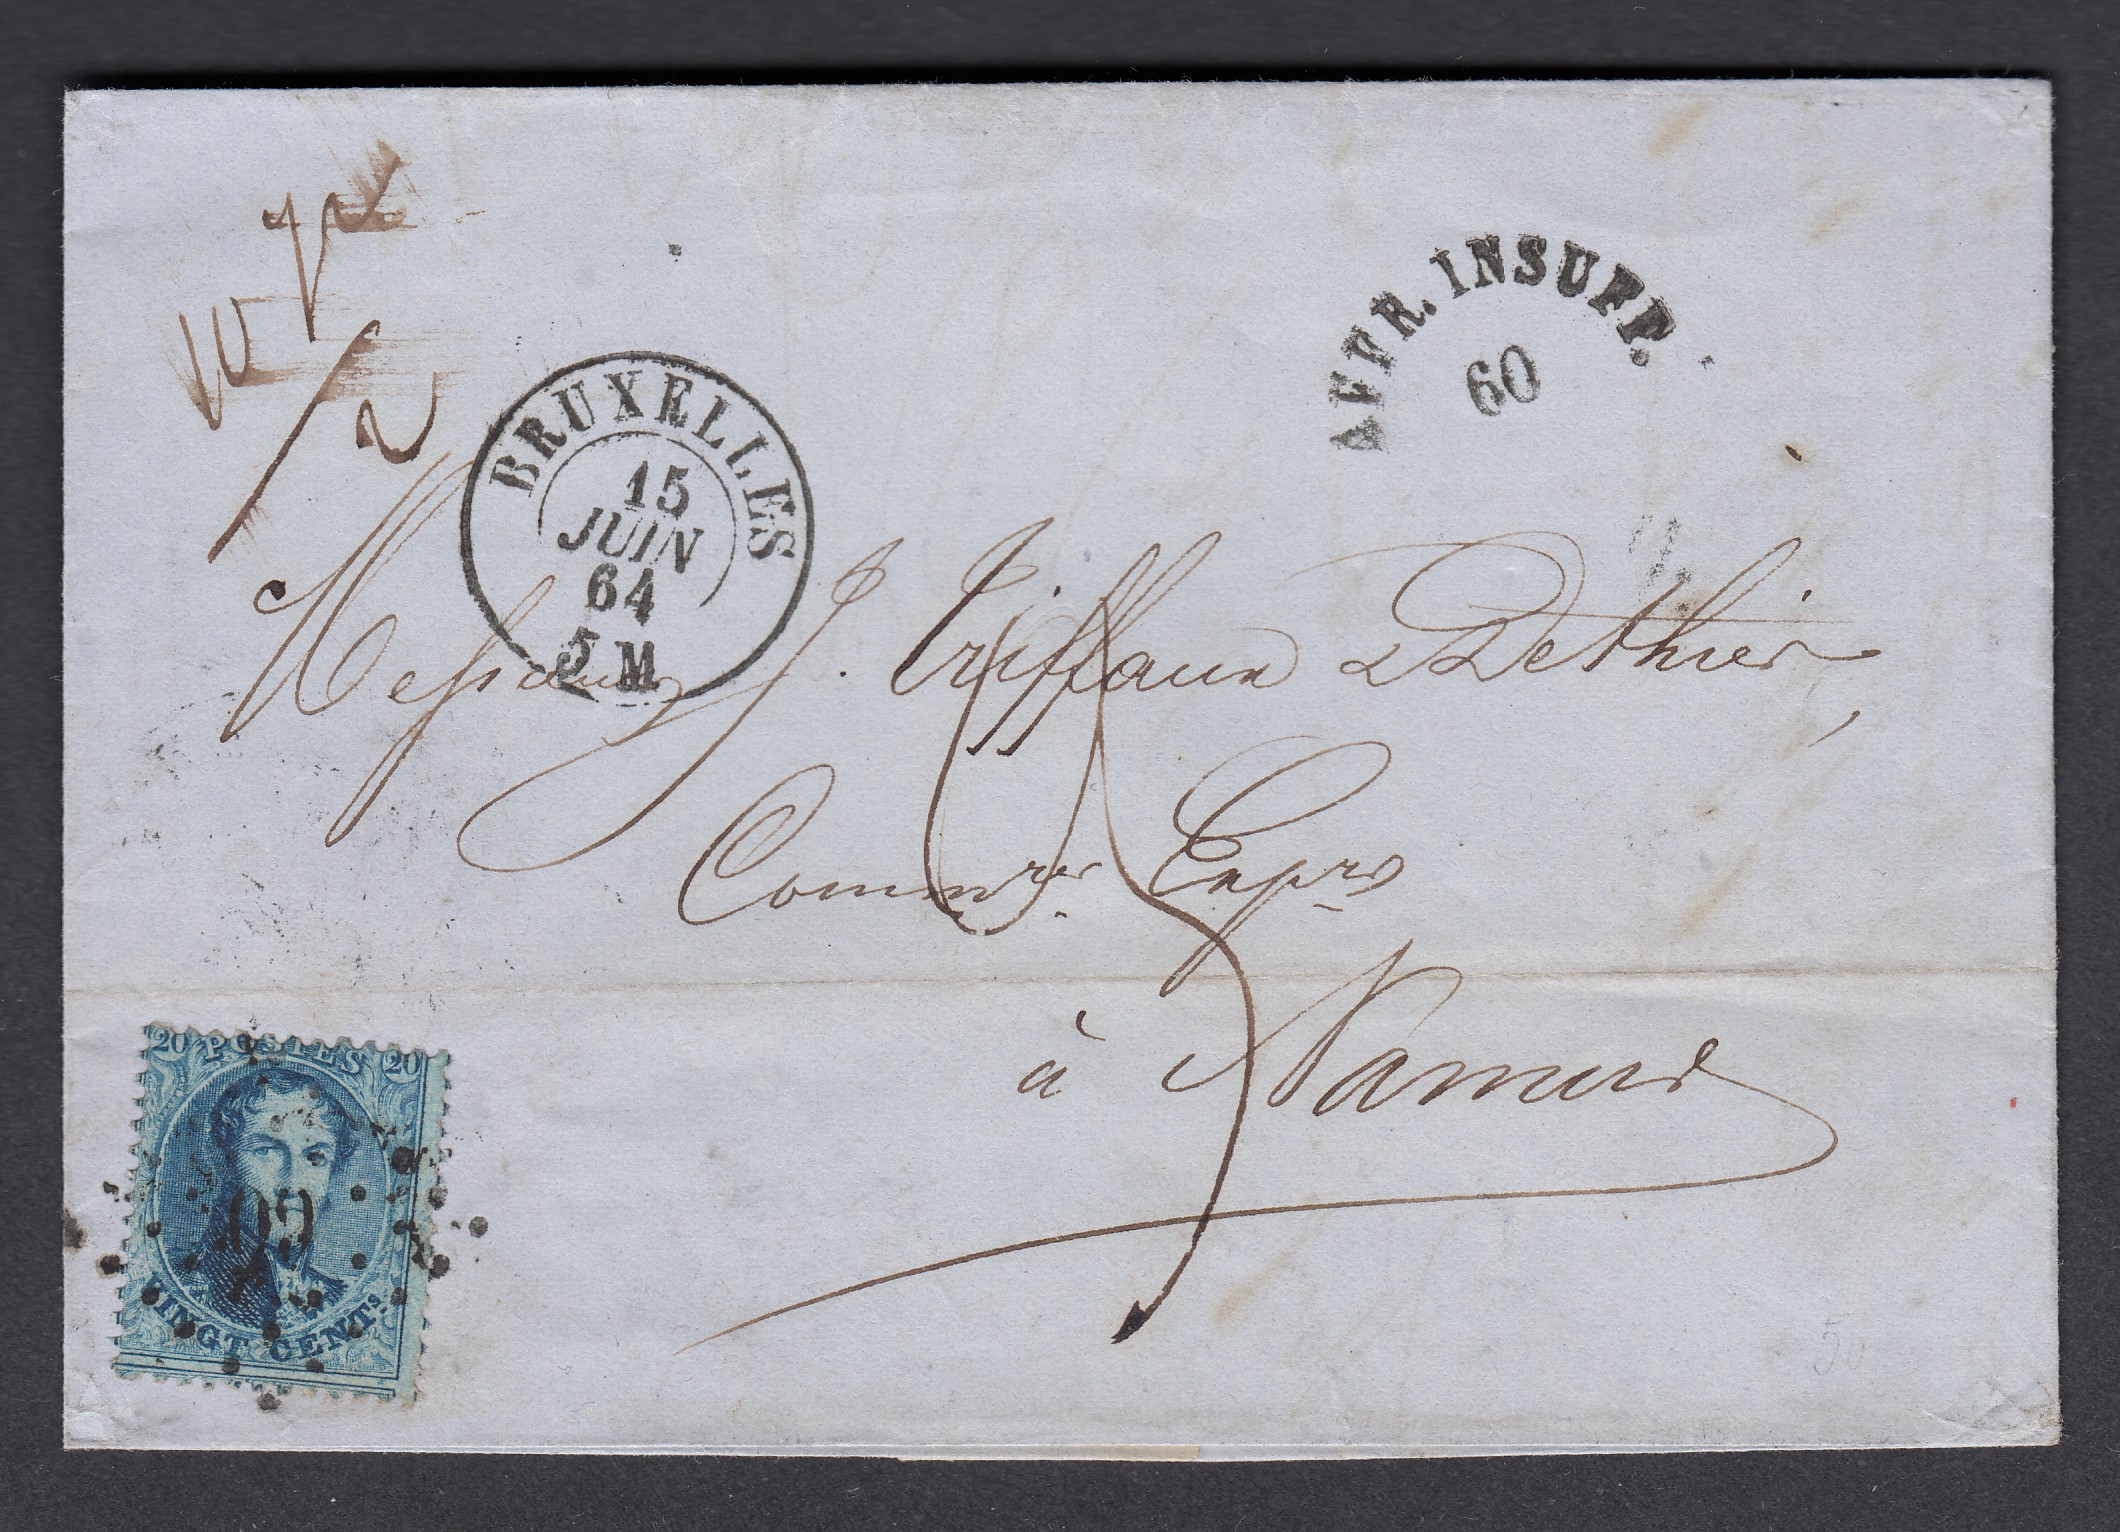 AFFR. INSUFF.
60
BRUXELLES
15
JUIN
64
5 M
Messieurs J. Triffaux & Dethier,
Commres Expres
à Namur
20 POSTES 20
60
VINGT CENTS.
50